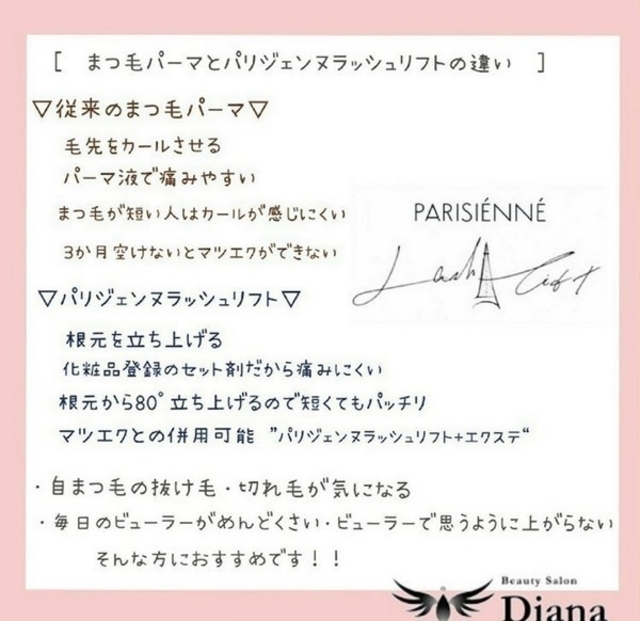 [ まつ毛パーマとパリジェンヌラッシュリフトの違い ]
▽従来のまつ毛パーマ▽
毛先をカールさせる
パーマ液で痛みやすい
まつ毛が短い人はカールが感じにくい
3か月空けないとマツエクができない
PARISIÉNNÉ
Lash Lift
▽パリジェンヌラッシュリフト▽
根元を立ち上げる
化粧品登録のセット剤だから痛みにくい
根元から80°立ち上げるので短くてもパッチリ
マツエクとの併用可能 "パリジェンヌラッシュリフト+エクステ"
・自まつ毛の抜け毛・切れ毛が気になる
・毎日のビューラーがめんどくさい・ビューラーで思うように上がらない
そんな方におすすめです!!
Beauty Salon
Diana